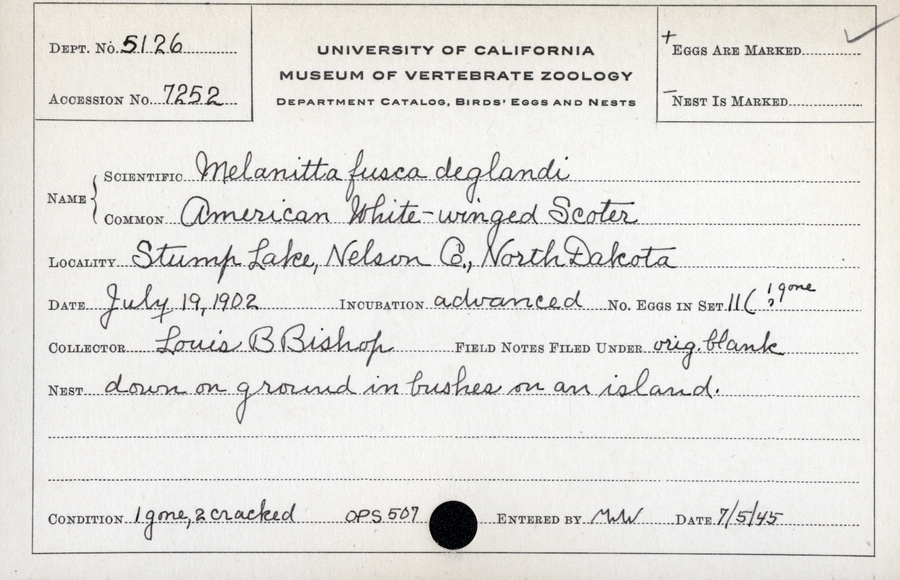 DEPT. No. 5126
ACCESSION No. 7252
UNIVERSITY OF CALIFORNIA
MUSEUM OF VERTEBRATE ZOOLOGY
DEPARTMENT CATALOG, BIRDS' EGGS AND NESTS
+ EGGS ARE MARKED ✓
− NEST IS MARKED
NAME { SCIENTIFIC Melanitta fusca deglandi
COMMON American White-winged Scoter
LOCALITY Stump Lake, Nelson Co., North Dakota
DATE July 19, 1902 INCUBATION advanced No. EGGS IN SET 11 ( 1 gone ?
COLLECTOR Louis B Bishop FIELD NOTES FILED UNDER orig. blank
NEST down on ground in bushes on an island.
CONDITION 1 gone, 2 cracked OPS 507 ENTERED BY DATE 7/5/45